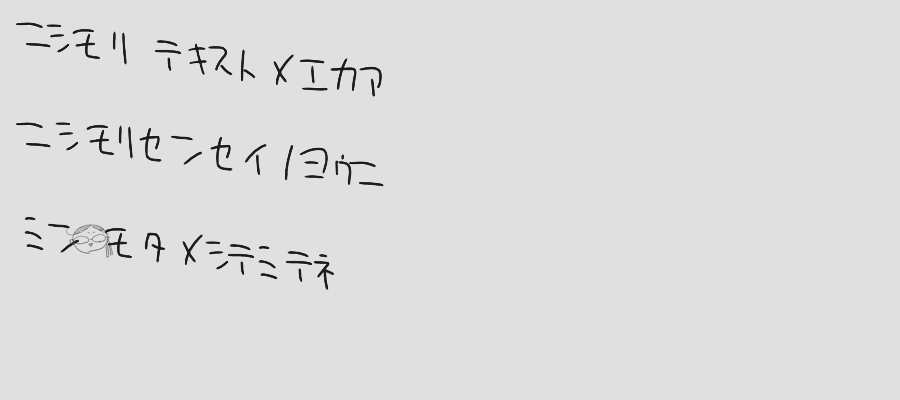 ニシモリ テキストメエカア
ニシモリセンセイノヨウニ
ミン モタメシテミテネ